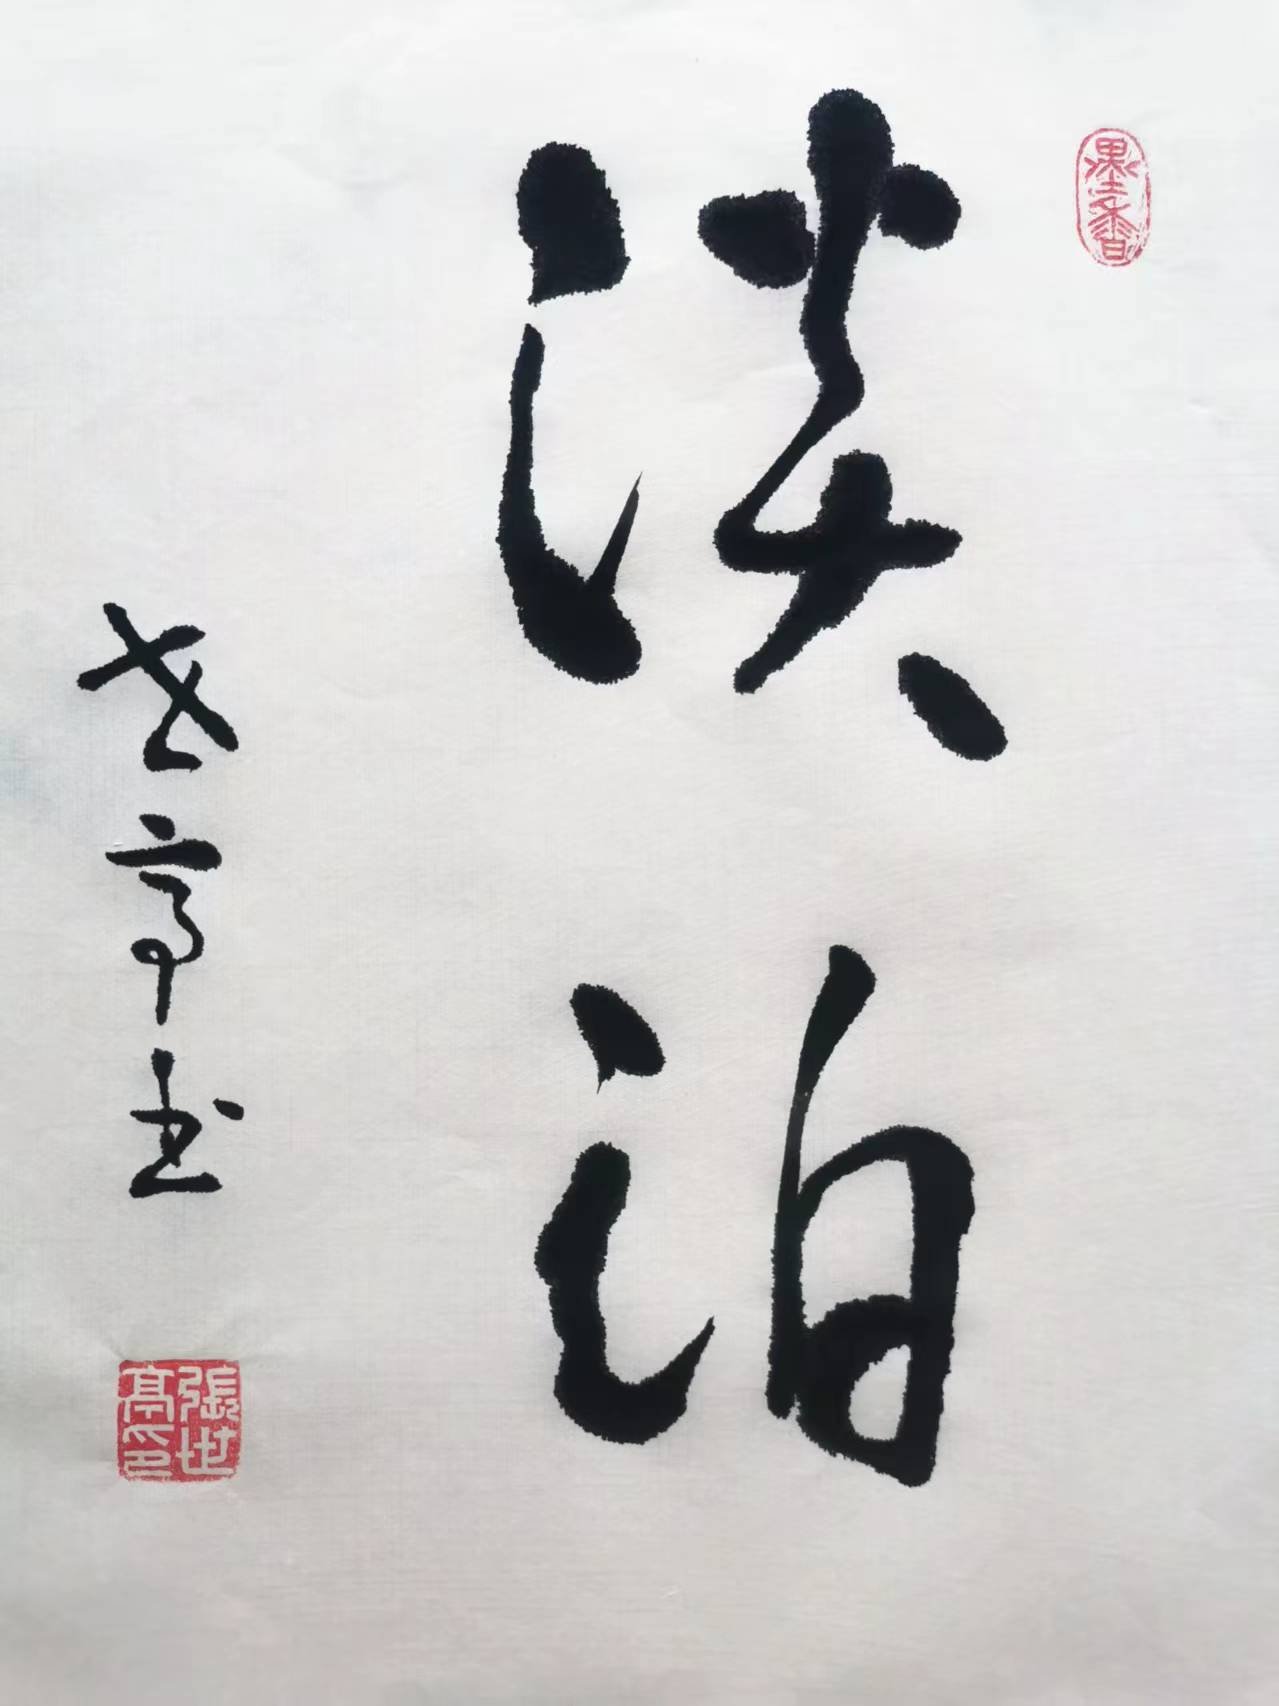 墨香
淡泊
世亭书
張世亭印